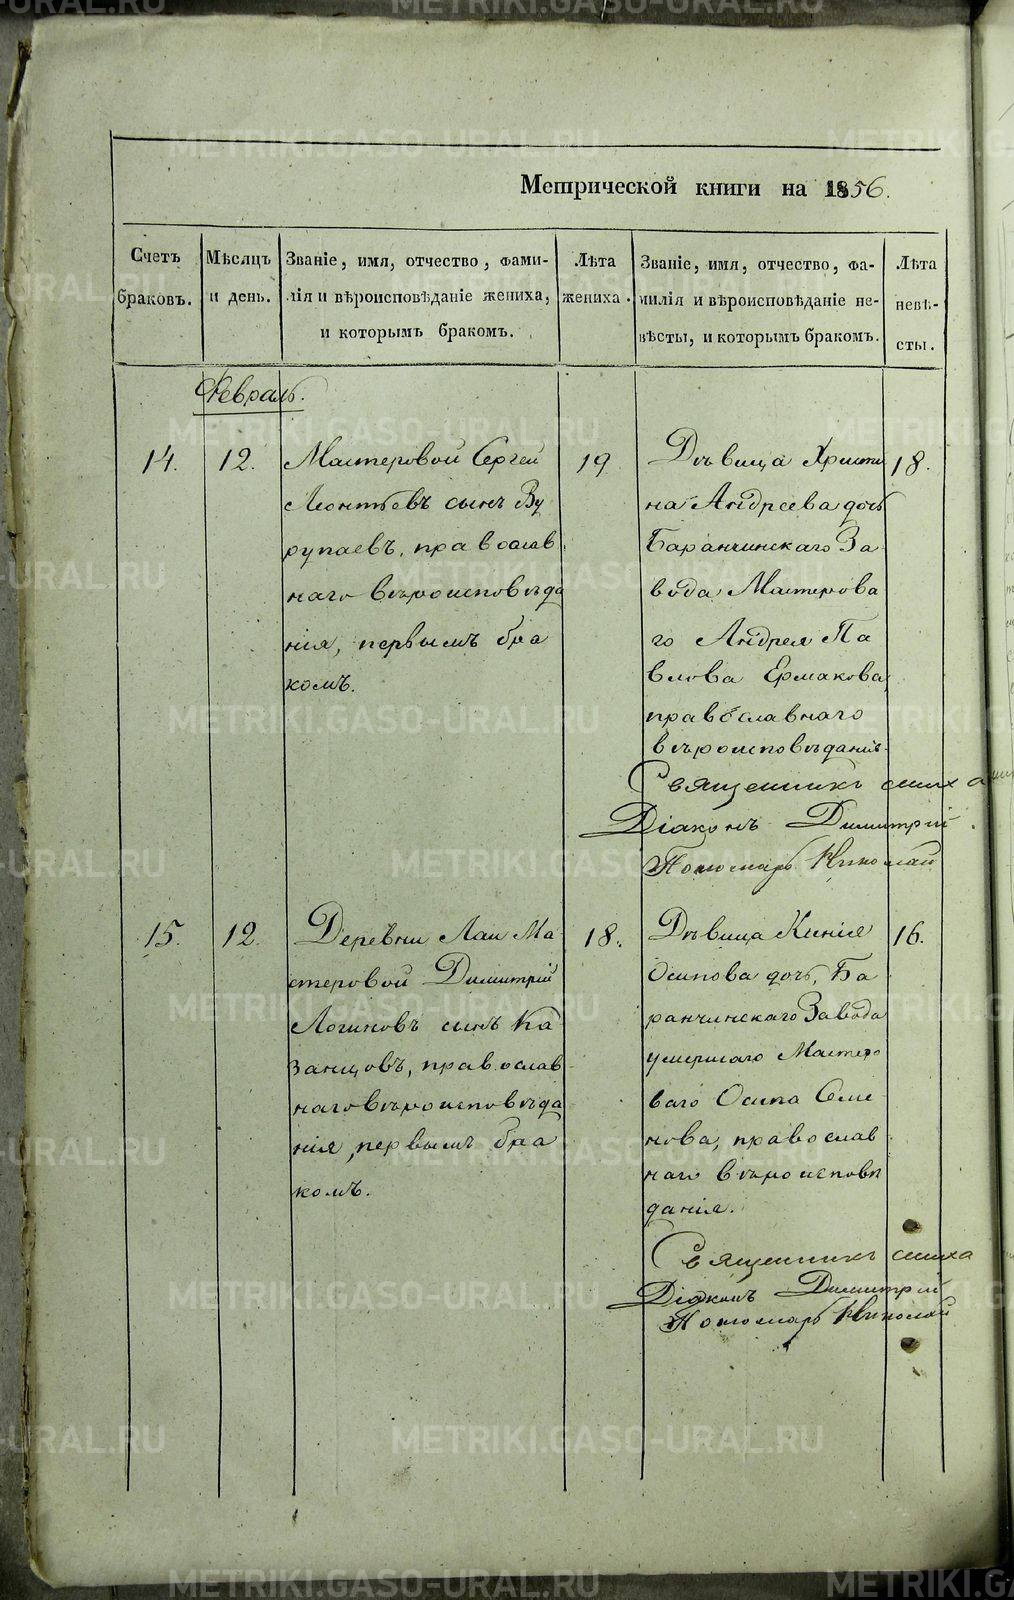 Метрической книги на 1856.
Счетъ браковъ.
Мѣсяцъ и день.
Званіе, имя, отчество, фами-
лія и вѣроисповѣданіе жениха,
и которымъ бракомъ.
Лѣта жениха.
Званіе, имя, отчество, фа-
милія и вѣроисповѣданіе не-
вѣсты, и которымъ бракомъ.
Лѣта
невѣ-
сты.
Февраль.
14.
12.
Мастеровой Сергей
Леонтьевъ сынъ Ву
рупаевъ, православ
наго вѣроисповѣда
нія, первымъ бра
комъ.
19
Дѣвица Христи
на Андреева дочь
Баранчинскаго За
вода Мастерова
го Андрея Па
влова Ермакова,
православнаго
вѣроисповѣданія
18.
Священникъ
Діаконъ Димитрій
Пономарь Николай
15.
12.
Деревни Лаи Ма
стеровой Димитрій
Логиновъ сынъ Ка
занцовъ, православ
наго вѣроисповѣда
нія, первымъ бра
комъ.
18.
Дѣвица
Осипова дочь, Ба
ранчинскаго Завода
умершаго Мастеро
ваго Осипа Семе
нова, православ
наго вѣроисповѣ
данія.
16.
Священникъ
Діаконъ Димитрій
Пономарь Николай
METRIKI.GASO-URAL.RU